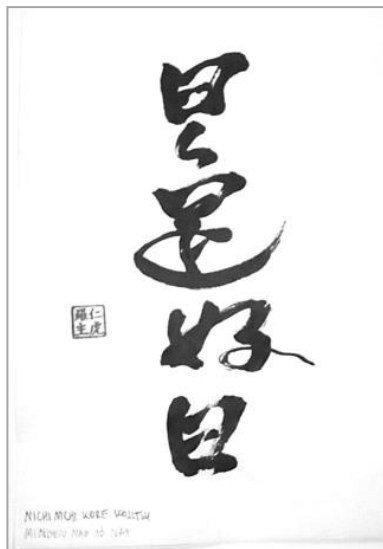 日々是好日
仁虎
NICHI NICHI KORE KOJITSU
MINDEN NAP JÓ NAP